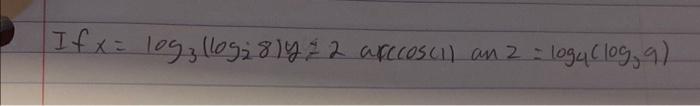 If x = log₃(log₂ 8) y = 2 arccos(1) an z = log₄(log₃ 9)